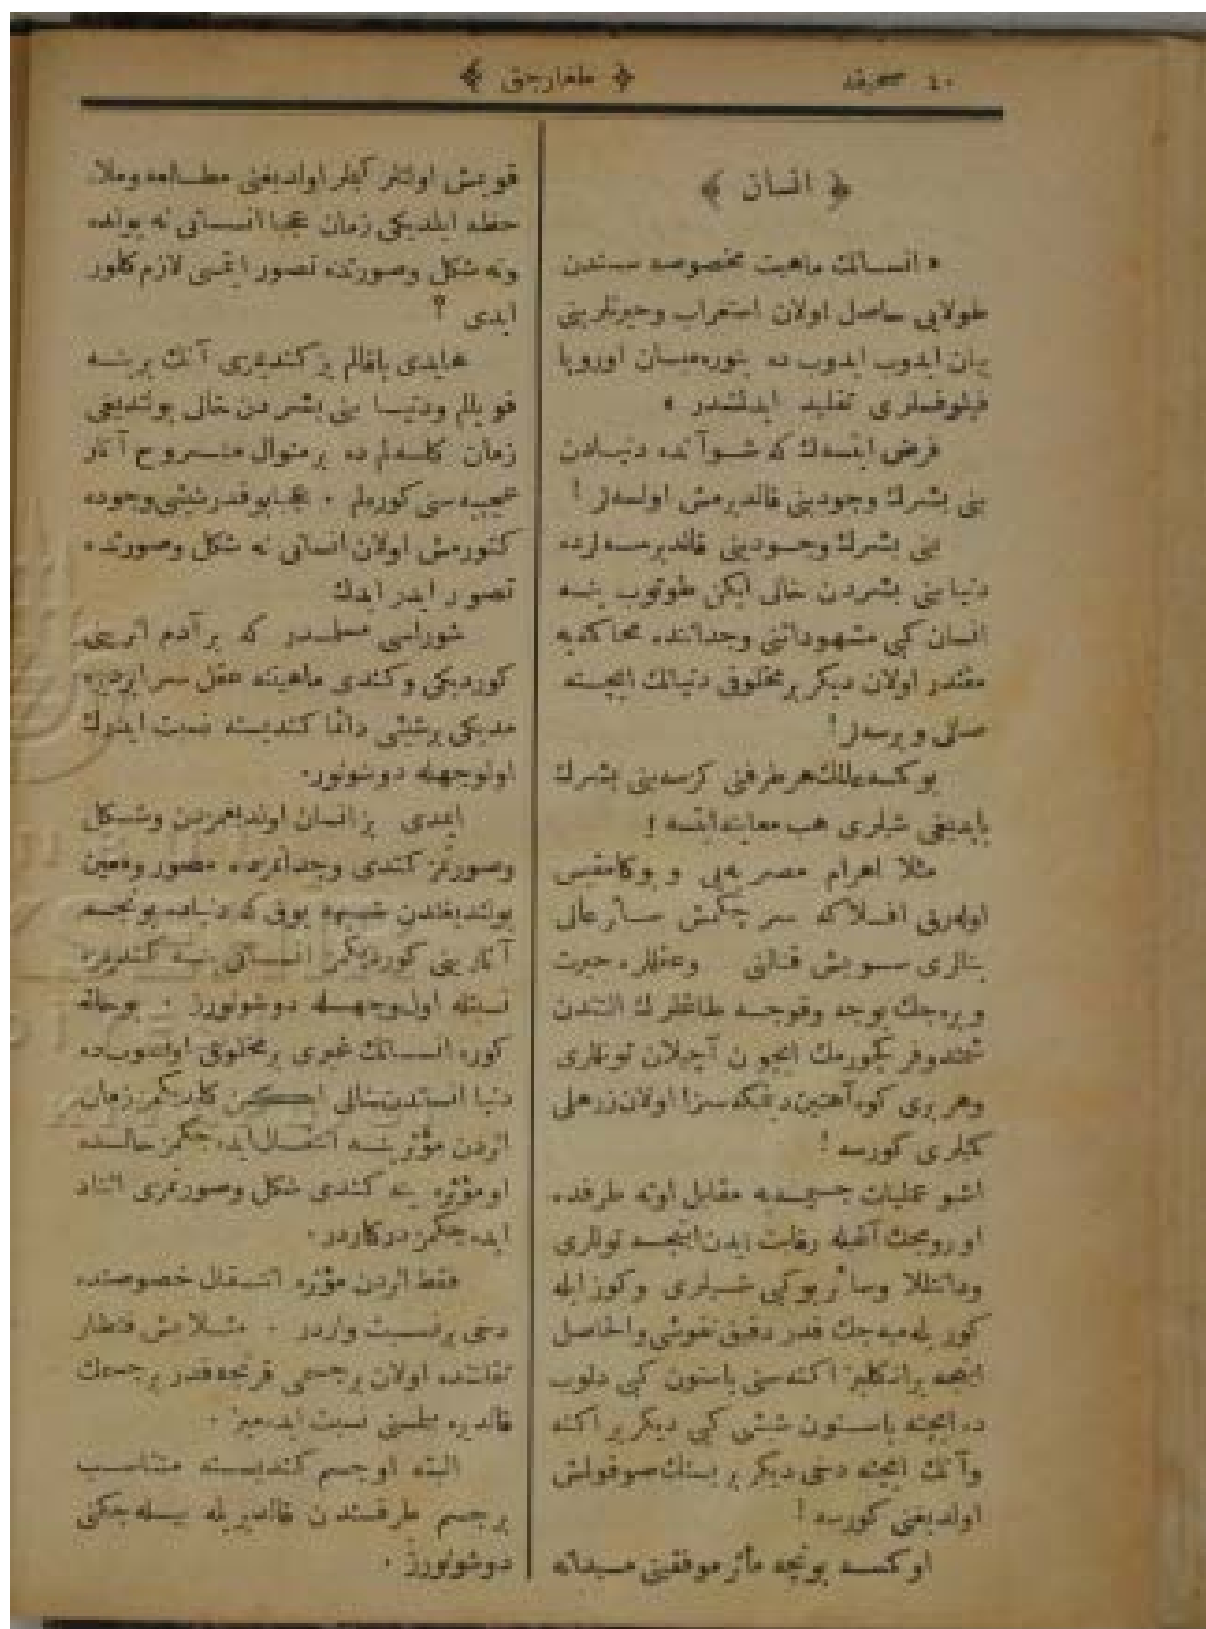 ٤٠ صحیفه
﴿ طغارجق ﴾
﴿ انسان ﴾
« انسانك ماهیت مخصوصه سندن
طولایی حاصل اولان استغراب وحیرتلرینی
بیان ایدوب ایدوب ده بتوره‌میان اوروپا
فیلوفلری تقلید ایدلمشدر »
فرض ایتسه‌ك كه شو آنده دنیادن
بنی بشرك وجودینی قالدیرمش اولسه‌لر !
بنی بشرك وجودینی قالدیرسه‌لرده
دنیا بنی بشردن خالی ایكن طوتوب ینه
انسان كبی مشهوداتنی وجداننده محاكه‌یه
مقتدر اولان دیكر بر مخلوقی دنیانك ایچنه
صالی ویرسه‌لر !
بو كسه عالمك هر طرفنی كزسه بنی بشرك
یاپدیغی شیلری هب معاینه ایتسه !
مثلا اهرام مصریه‌یی و بوكا مقیس
اوله‌رق افلاكه سر چكمش سائر عالی
بنالری سویش قنالنی وعقللره حیرت
ویره‌جك یوجه وقوجه طاغلرك التندن
شمندوفر كچورمك ایچون آچیلان تونللری
وهر بری كوه آهنین دینمكه سزا اولان زرهلی
كمیلری كورسه !
اشبو عملیات جسیمه‌یه مقابل اوته طرفده
اورومجك آغیله رقابت ایدن اینجه تولاری
ودانتللا وسائر بو كبی شیلری وكوز ایله
كوریله‌میه‌جك قدر دقیق نقوشی والحاصل
اینجه بر انكلیز اكنه‌سی باستون كبی دلوب
ده ایچنه باستون شیشی كبی دیكر بر اكنه
وآنك ایچنه دخی دیكر برینك صوقولمش
اولدیغنی كورسه !
او كسه بونجه مآثر موفقیتی میدانه
قویمش اولانلر كیملر اولدیغنی مطالعه وملا
حظه ایلدیكی زمان عجبا انسانی نه یولده
ونه شكل وصورتده تصور ایتمسی لازم كلور
ایدی ؟
هایدی باقالم بز كندیمزی آنك یرینه
قویالم ودنیا بنی بشردن خالی بولندیغی
زمان كلسه‌لم ده بر منوال مشروح آثار
عجیبه سنی كوره‌لم . عجبا بو قدر شیئی وجوده
كتورمش اولان انسانی نه شكل وصورتده
تصور ایدر ایدك
شوراسی مسلمدر كه بر آدم اثرینی
كوردیكی وكندی ماهیتنه عقل سر ایردیره
مدیكی بر شیئی دائما كندیسنه نسبت ایدرك
اولوجهله دوشونور .
ایمدی بز انسان اولدیغمزدن وشكل
وصورتمز كندی وجدانمزده مصور ومعین
بولندیغندن شبهه یوق كه دنیاده بونجه
آثارینی كوردیكمز انسانی ینه كندیمزه
نسبتله اولوجهله دوشونورز . بو حاله
كوره انسانك غیری بر مخلوق اولوب ده
دنیا انساندن خالی ایكن كلدیكمز زمان
اثردن مؤثرینه انتقال ایده‌جكمز حالده
او مؤثره ینه كندی شكل وصورتمزی اسناد
ایده‌جكمز دركاردر .
فقط اثردن مؤثره انتقال خصوصنده
دخی بر نسبت واردر . مثلا بش قنطار
ثقلتده اولان بر جسمی قرنجه قدر بر جسمك
قالدیره بیلمسنی نسبت ایده‌میز .
البته او جسم كندیسنه متناسب
بر جسم طرفندن قالدیریله بیله‌جكنی
دوشونورز .